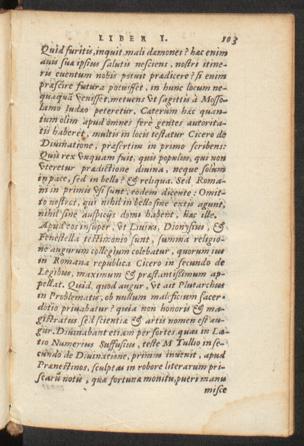 LIBER I. 103
Quid furitis, inquit, mali dæmones? hæc enim
auis suæ ipsius salutis nesciens, nostri itine-
ris euentum nobis potuit prædicere? si enim
præscire futura potuisset, in hunc locum ne-
quaquā venisset, metuens vt sagittis à Mosso-
lamo Iudæo peteretur. Cæterum hæc quan-
tum olim apud omnes ferè gentes autorita-
tis haberet, multis in locis testatur Cicero de
Diuinatione, præsertim in primo scribens:
Quis rex vnquam fuit, quis populus, qui non
vteretur prædictione diuina, neque solùm
in pace, sed in bello? & reliqua. Sed Roma-
ni in primis vsi sunt, eodem dicente: Omit-
to nostros, qui nihil in bello sine extis agunt,
nihil sine auspicijs domi habent, hæc ille.
Apud eos insuper, vt Liuius, Dionysius, &
Fenestella testimonio sunt, summa religio-
ne augurum collegium colebatur, quorum ius
in Romana republica Cicero in secundo de
Legibus, maximum & præstantissimum ap-
pellat. Quid, quod augur, vt ait Plutarchus
in Problematis, ob nullum maleficium sacer-
dotio priuabatur? quia non honoris & ma-
gistratus sed scientiæ & artis nomen est au-
gur. Diuinabant etiam per sortes, quas in La-
tio Numerius Suffusius, teste M Tullio in se-
cundo de Diuinatione, primus inuenit, apud
Prænestinos, sculptas in robore literarum pri-
scarū notis, quæ fortunæ monitu, pueri manu
misce